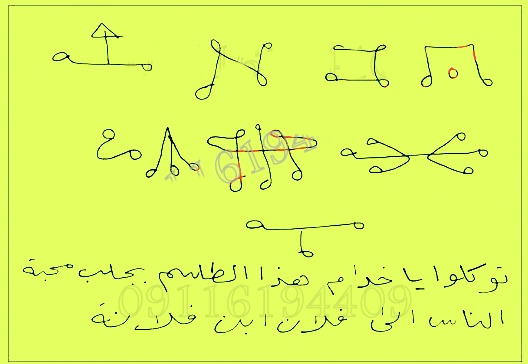 6194
توكلوا يا خدام هذا الطلسم بجلب محبة
09116194409
الناس الى فلان ابن فلانة